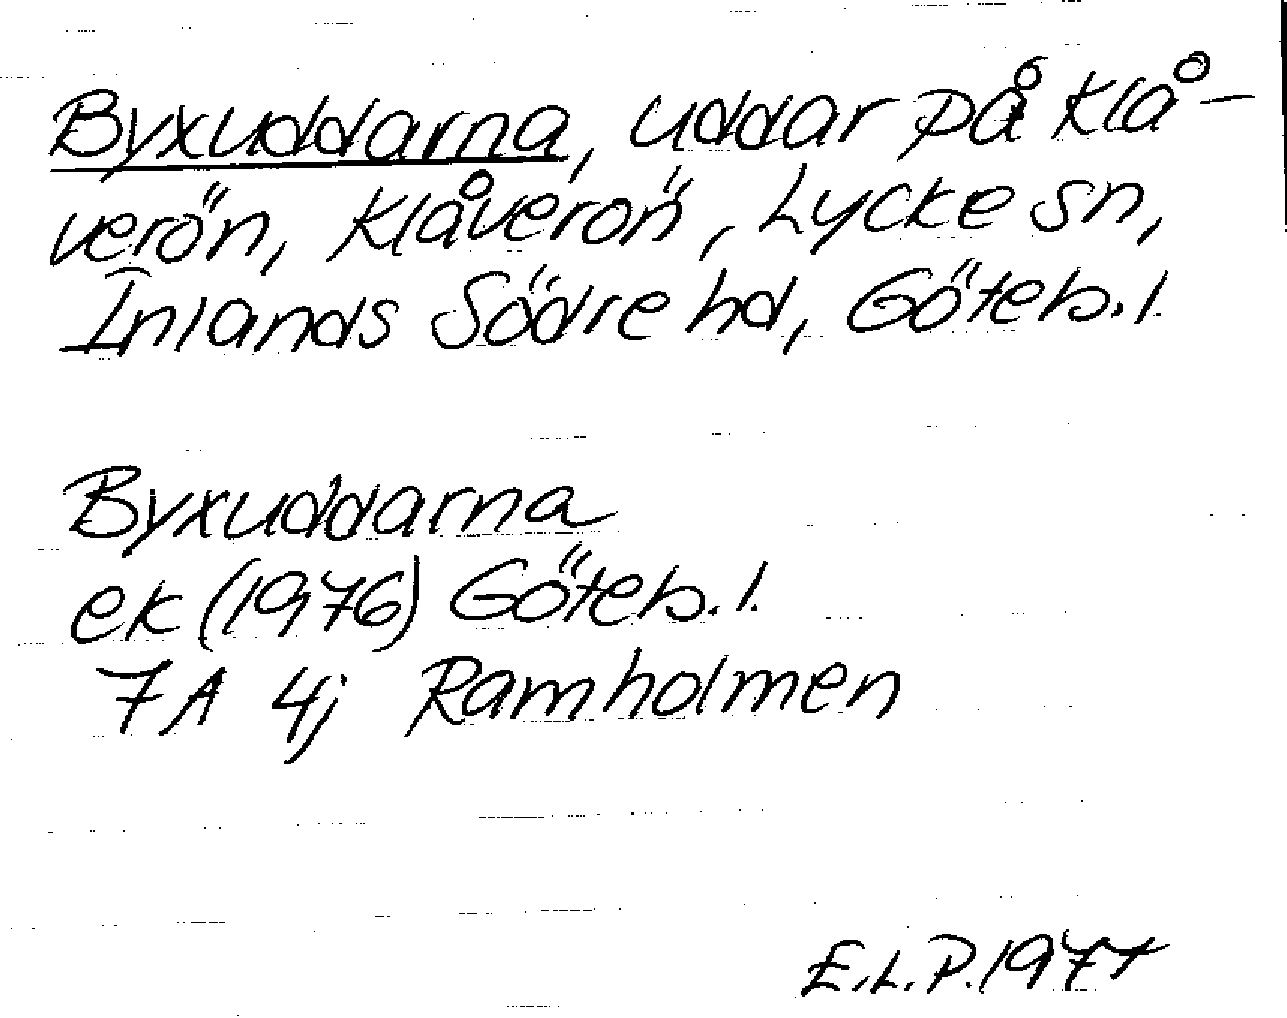 Byxuddarna, uddar på Klå-
verön, Klåverön, Lycke sn,
Inlands Södre hd, Göteb. l.
Byxuddarna
ek (1976) Göteb. l.
7A 4j Ramholmen
E.L.P. 1977